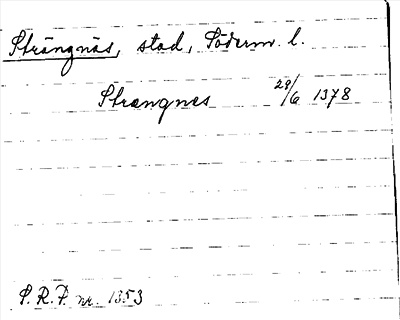 Strängnäs, stad, Söderm. l.
Strangnes 29/6 1378
S.R.P. nr. 1353